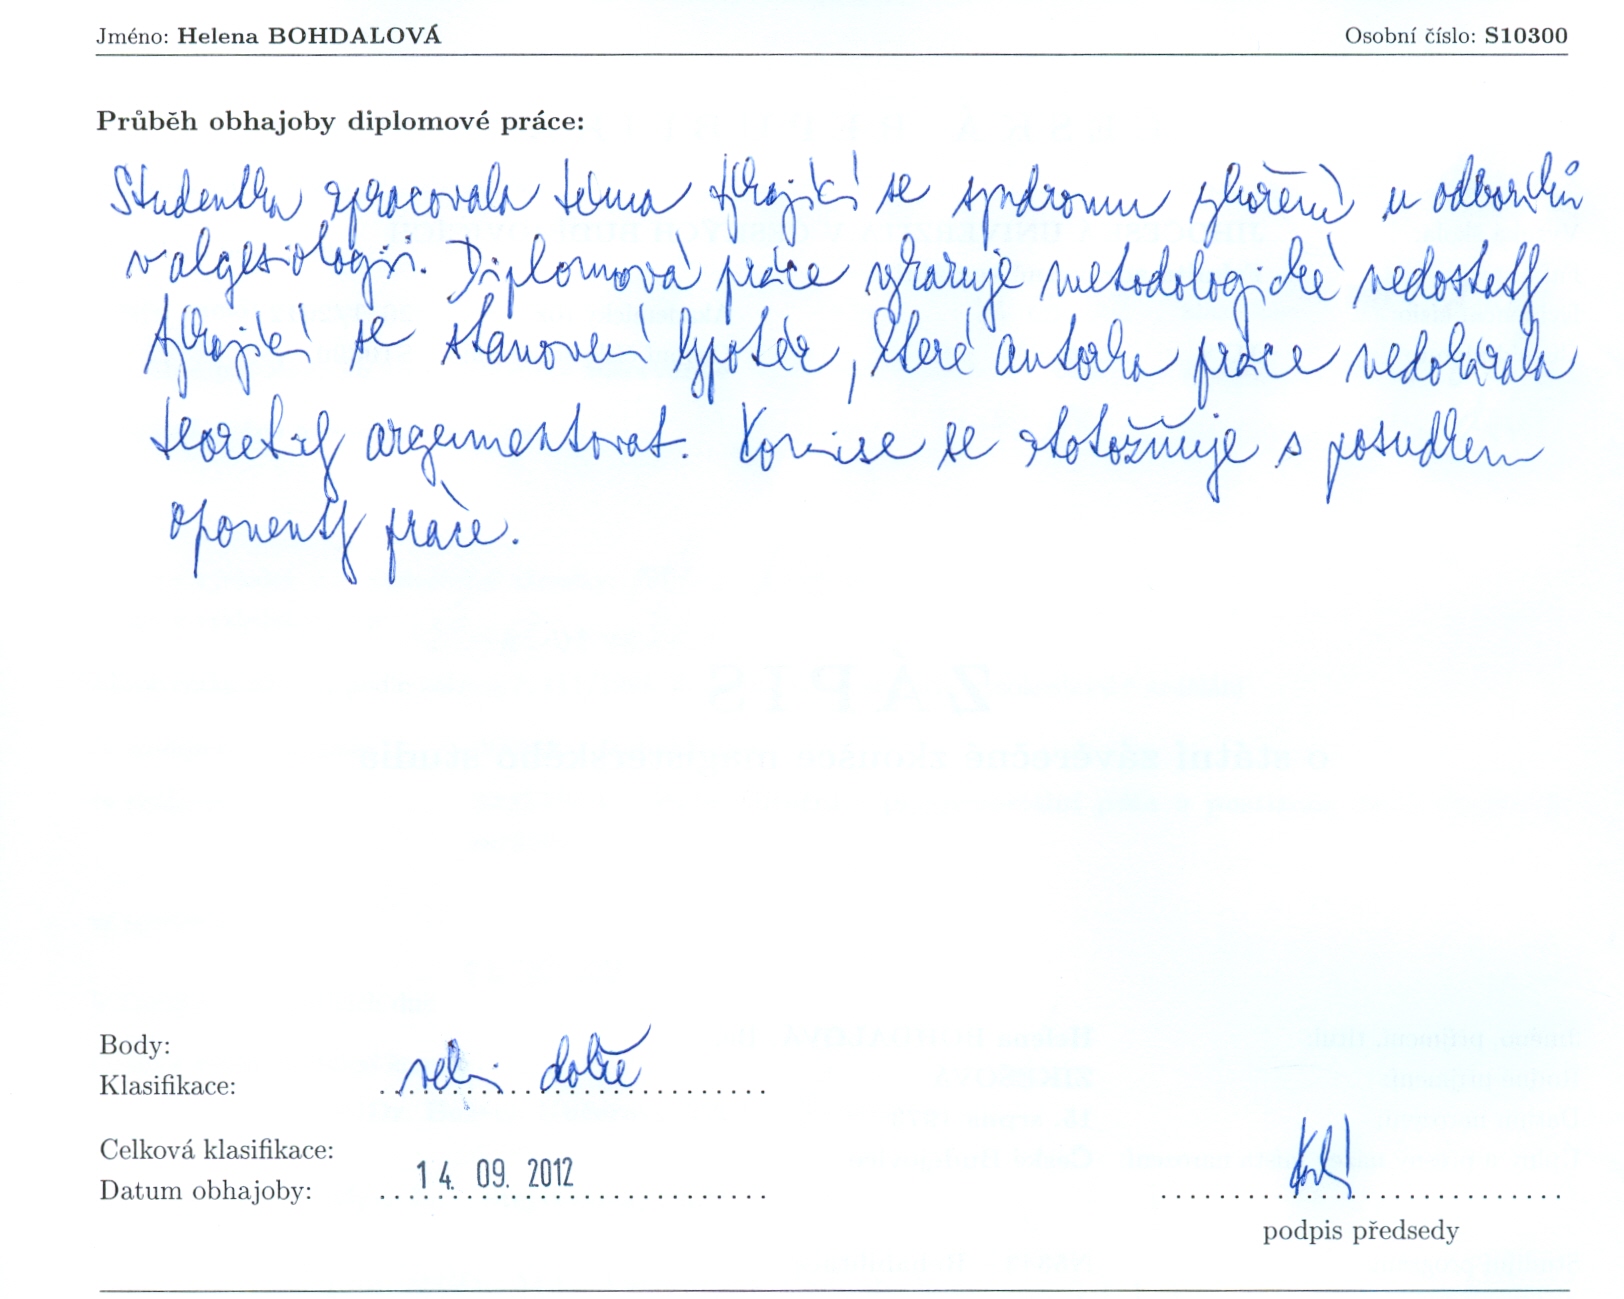 Jméno: Helena BOHDALOVÁ Osobní číslo: S10300
Průběh obhajoby diplomové práce:
Studentka zpracovala téma týkající se syndromu vyhoření u odborníků
v algesiologii. Diplomová práce vykazuje metodologické nedostatky
týkající se stanovení hypotéz, které autorka práce nedokázala
teoreticky argumentovat. Komise se ztotožňuje s posudkem
oponenty práce.
ZÁPIS
o státní závěrečné
Body:
Klasifikace: velmi dobře
Celková klasifikace:
Datum obhajoby: 14. 09. 2012
podpis předsedy